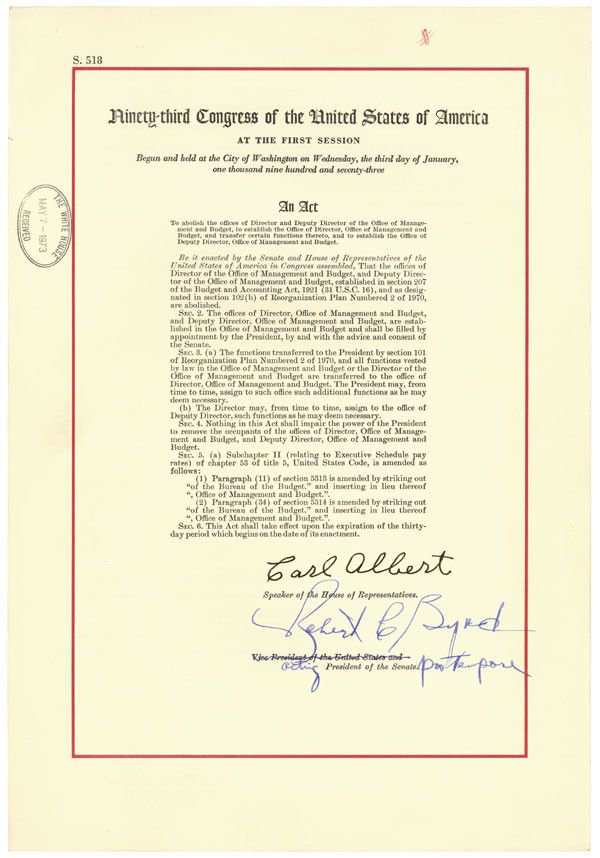 S. 518
Ninety-third Congress of the United States of America
AT THE FIRST SESSION
Begun and held at the City of Washington on Wednesday, the third day of January,
one thousand nine hundred and seventy-three
THE WHITE HOUSE
MAY 7 - 1973
RECEIVED
An Act
To abolish the offices of Director and Deputy Director of the Office of Manage-
ment and Budget, to establish the Office of Director, Office of Management and
Budget, and transfer certain functions thereto, and to establish the Office of
Deputy Director, Office of Management and Budget.
Be it enacted by the Senate and House of Representatives of the
United States of America in Congress assembled, That the offices of
Director of the Office of Management and Budget, and Deputy Direc-
tor of the Office of Management and Budget, established in section 207
of the Budget and Accounting Act, 1921 (31 U.S.C. 16), and as desig-
nated in section 102(b) of Reorganization Plan Numbered 2 of 1970,
are abolished.
SEC. 2. The offices of Director, Office of Management and Budget,
and Deputy Director, Office of Management and Budget, are estab-
lished in the Office of Management and Budget and shall be filled by
appointment by the President, by and with the advice and consent of
the Senate.
SEC. 3. (a) The functions transferred to the President by section 101
of Reorganization Plan Numbered 2 of 1970, and all functions vested
by law in the Office of Management and Budget or the Director of the
Office of Management and Budget are transferred to the office of
Director, Office of Management and Budget. The President may, from
time to time, assign to such office such additional functions as he may
deem necessary.
(b) The Director may, from time to time, assign to the office of
Deputy Director, such functions as he may deem necessary.
SEC. 4. Nothing in this Act shall impair the power of the President
to remove the occupants of the offices of Director, Office of Manage-
ment and Budget, and Deputy Director, Office of Management and
Budget.
SEC. 5. (a) Subchapter II (relating to Executive Schedule pay
rates) of chapter 53 of title 5, United States Code, is amended as
follows:
(1) Paragraph (11) of section 5313 is amended by striking out
"of the Bureau of the Budget." and inserting in lieu thereof
", Office of Management and Budget.".
(2) Paragraph (34) of section 5314 is amended by striking out
"of the Bureau of the Budget." and inserting in lieu thereof
", Office of Management and Budget.".
SEC. 6. This Act shall take effect upon the expiration of the thirty-
day period which begins on the date of its enactment.
Carl Albert
Speaker of the House of Representatives.
Robert C Byrd
Vice President of the United States and
acting President of the Senate. pro tempore